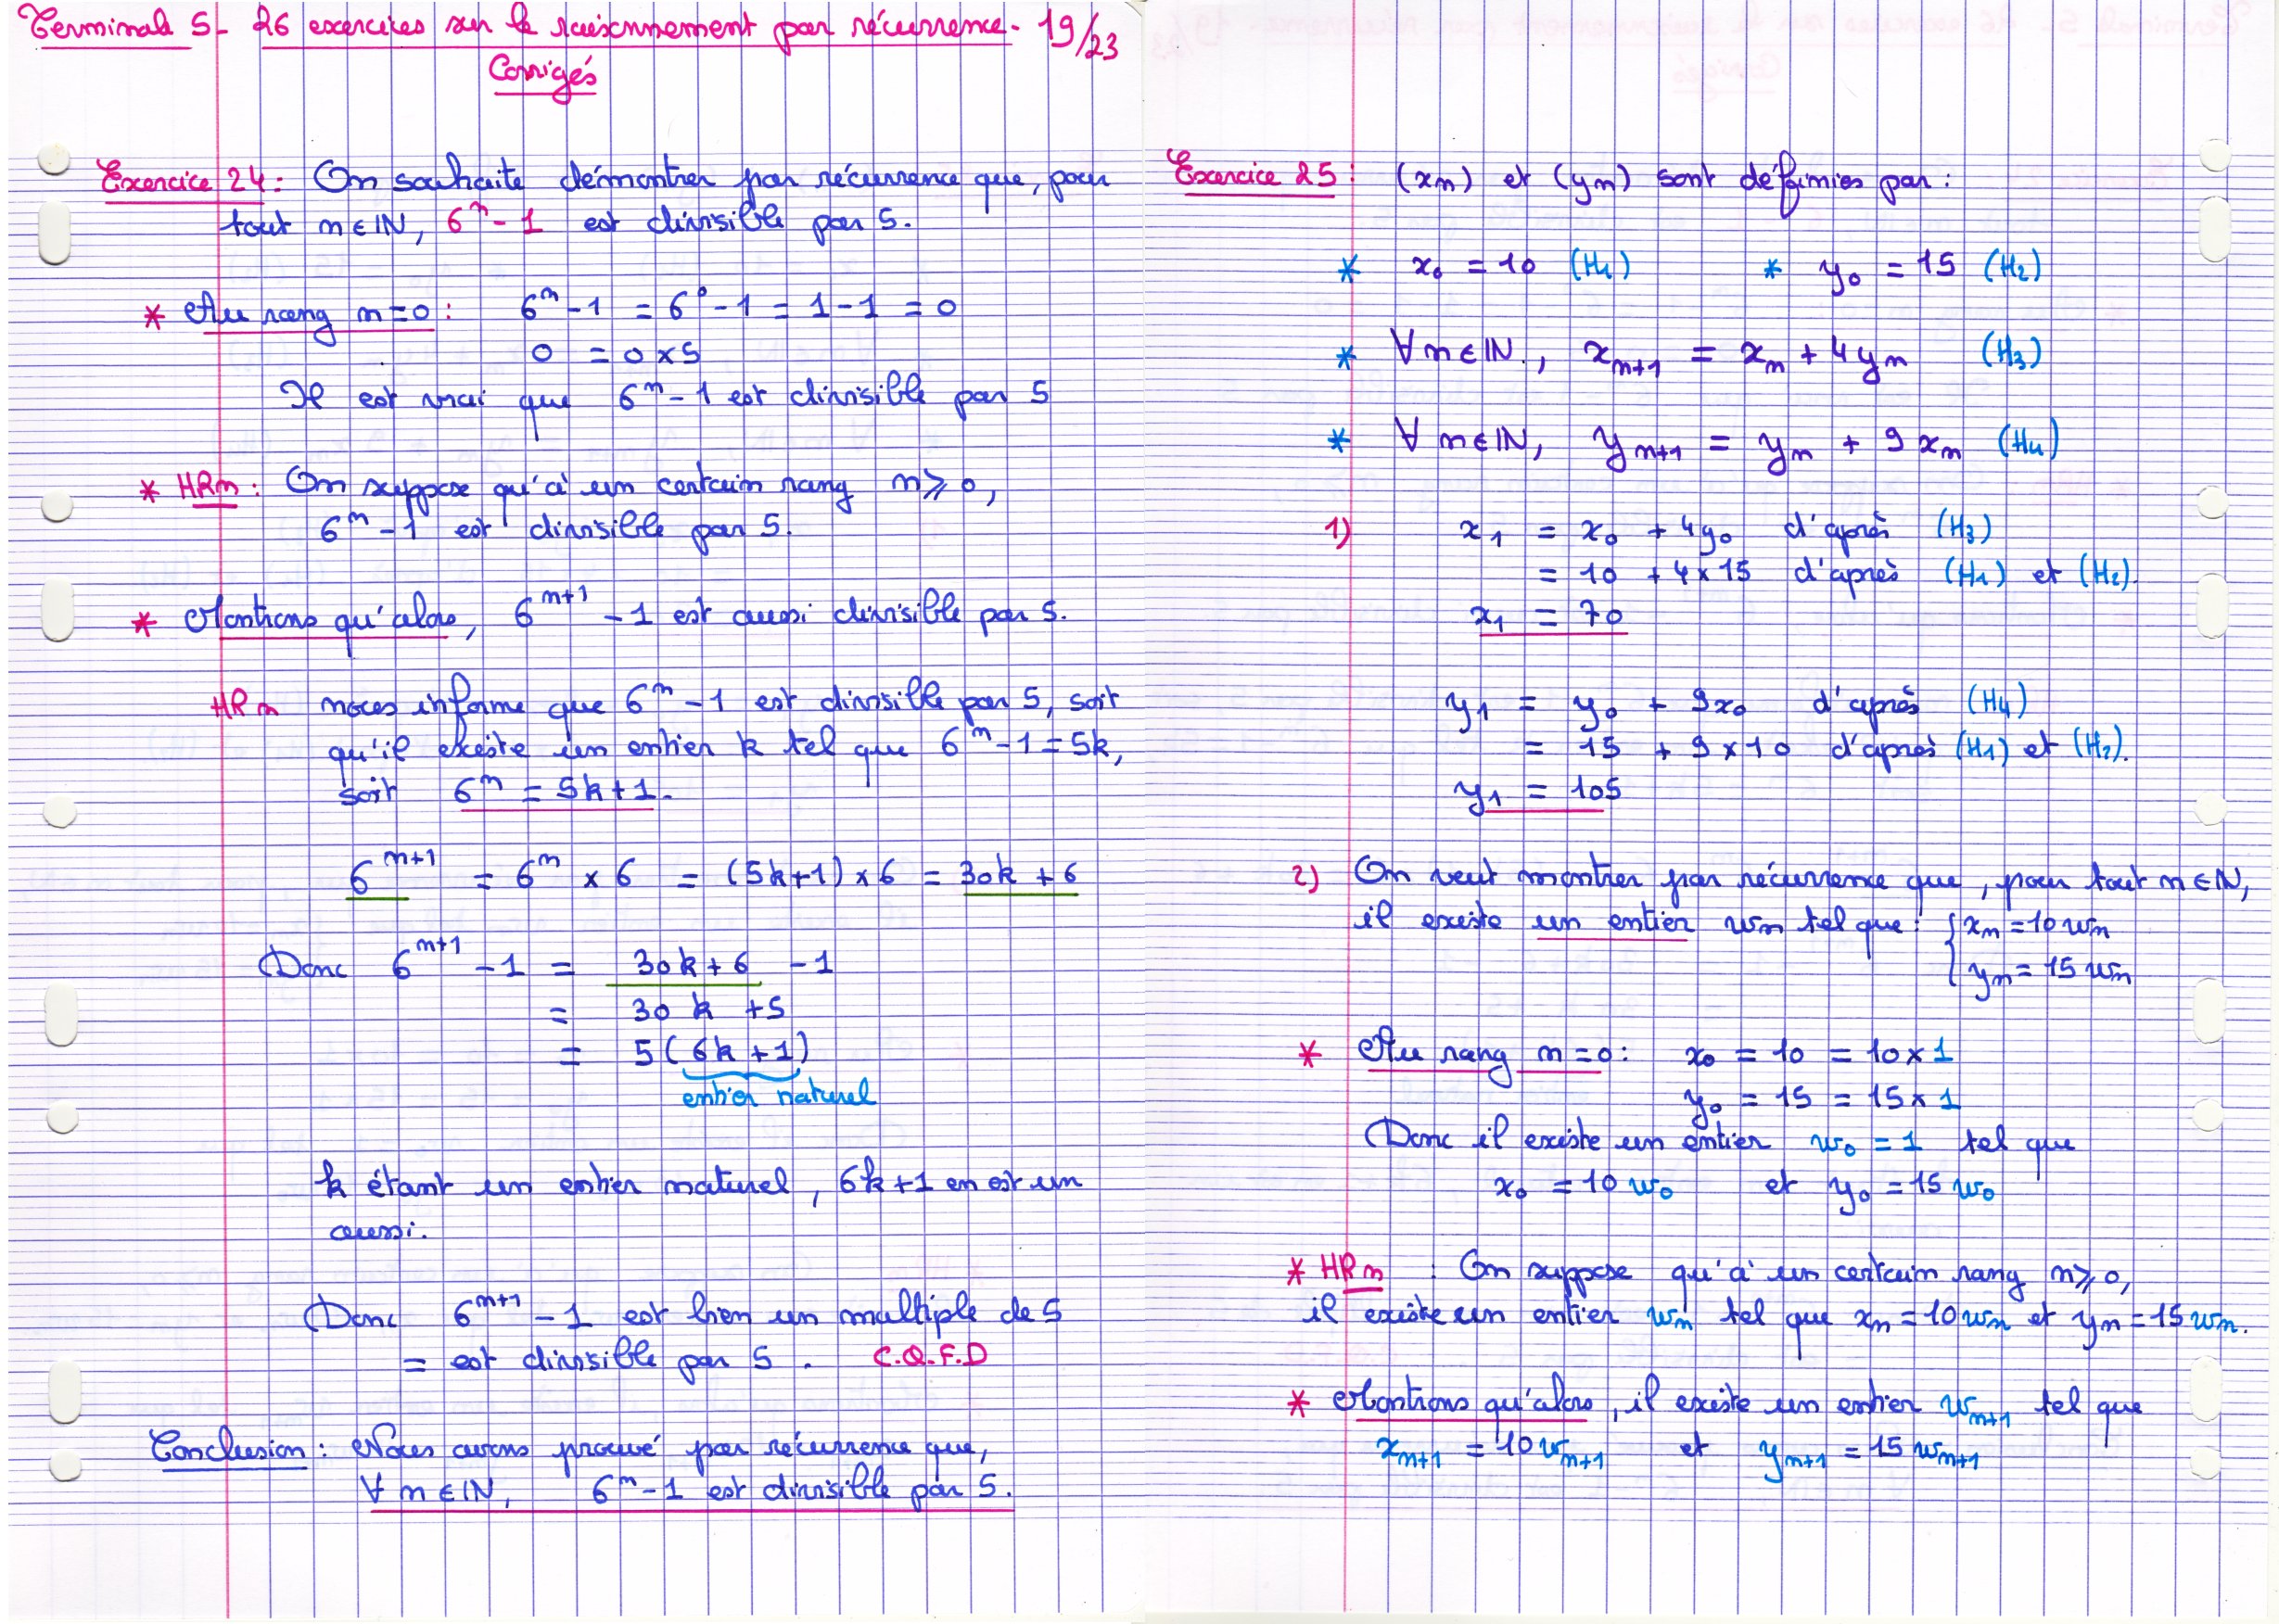 Terminale S - 26 exercices sur le raisonnement par récurrence - 19/23
Corrigés
Exercice 24 : On souhaite démontrer par récurrence que, pour
tout n ∈ ℕ, 6ⁿ - 1 est divisible par 5.
* Au rang n = 0 : 6ⁿ - 1 = 6⁰ - 1 = 1 - 1 = 0
0 = 0 × 5
Il est vrai que 6ⁿ - 1 est divisible par 5
* HRn : On suppose qu'à un certain rang n ⩾ 0,
6ⁿ - 1 est divisible par 5.
* Montrons qu'alors, 6ⁿ⁺¹ - 1 est aussi divisible par 5.
HRn nous informe que 6ⁿ - 1 est divisible par 5, soit
qu'il existe un entier k tel que 6ⁿ - 1 = 5k,
soit 6ⁿ = 5k + 1.
6ⁿ⁺¹ = 6ⁿ × 6 = (5k+1) × 6 = 30k + 6
Donc 6ⁿ⁺¹ - 1 = 30k + 6 - 1
= 30k + 5
= 5(6k + 1)
entier naturel
k étant un entier naturel, 6k+1 en est un
aussi.
Donc 6ⁿ⁺¹ - 1 est bien un multiple de 5
= est divisible par 5. C.Q.F.D
Conclusion : Nous avons prouvé par récurrence que,
∀ n ∈ ℕ, 6ⁿ - 1 est divisible par 5.
Exercice 25 : (xₙ) et (yₙ) sont définies par :
* x₀ = 10 (H₁) * y₀ = 15 (H₂)
* ∀ n ∈ ℕ, xₙ₊₁ = xₙ + 4yₙ (H₃)
* ∀ n ∈ ℕ, yₙ₊₁ = yₙ + 9xₙ (H₄)
1) x₁ = x₀ + 4y₀ d'après (H₃)
= 10 + 4 × 15 d'après (H₁) et (H₂).
x₁ = 70
y₁ = y₀ + 9x₀ d'après (H₄)
= 15 + 9 × 10 d'après (H₁) et (H₂).
y₁ = 105
2) On veut montrer par récurrence que, pour tout n ∈ ℕ,
il existe un entier wₙ tel que : { xₙ = 10 wₙ
yₙ = 15 wₙ
* Au rang n = 0 : x₀ = 10 = 10 × 1
y₀ = 15 = 15 × 1
Donc il existe un entier w₀ = 1 tel que
x₀ = 10 w₀ et y₀ = 15 w₀
* HRn : On suppose qu'à un certain rang n ⩾ 0,
il existe un entier wₙ tel que xₙ = 10 wₙ et yₙ = 15 wₙ.
* Montrons qu'alors, il existe un entier wₙ₊₁ tel que
xₙ₊₁ = 10 wₙ₊₁ et yₙ₊₁ = 15 wₙ₊₁